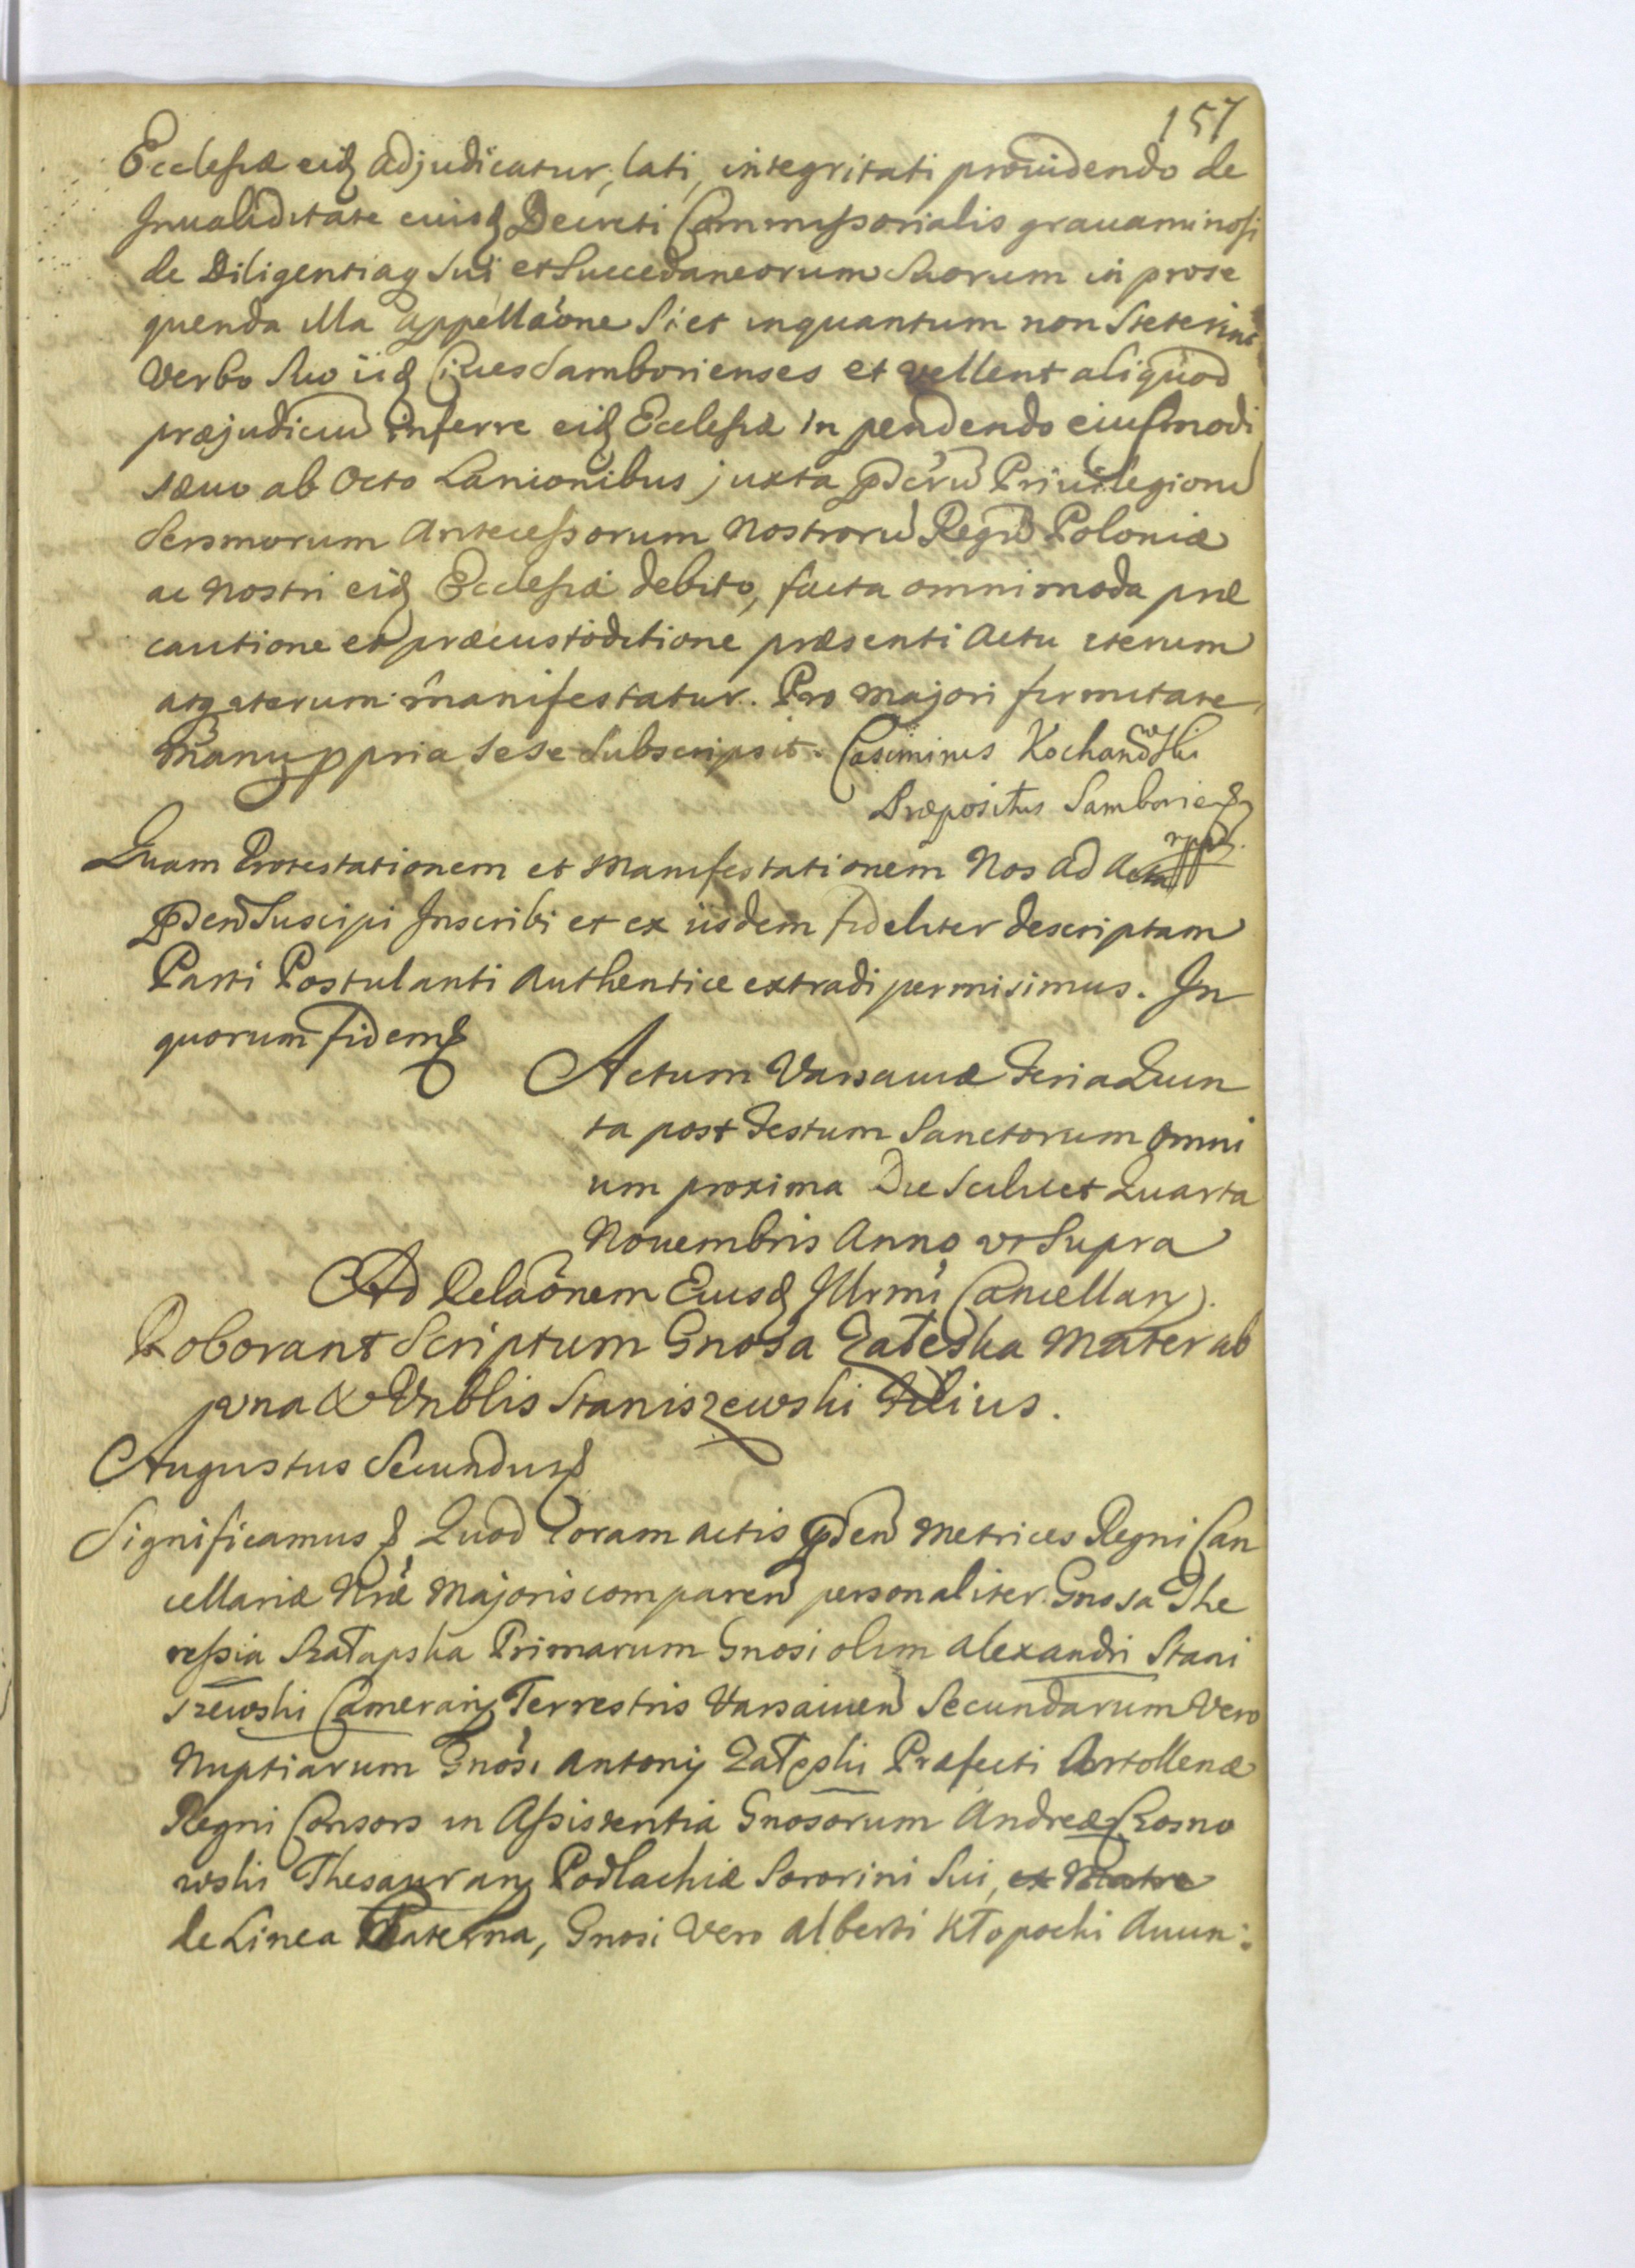 157
Ecclesiæ eidq adjudicatur, lati, integritati providendo de
Invaliditate eiusd Decreti Commissorialis grauaminosi
de Diligentiaq Sui et Succedaneorum Suorum in prose
quenda illa Appellaõne Si et inquantum non Steterint
Verbo Suo iid Ciues Samborienses et vellent aliquod
præjudiciũ inferre eid Ecclesiæ in pendendo eiusmodi
sæuo ab Octo Lanionibus juxta pdcrũ Priuilegiorũ
Sersmorum Antecessorum Nostrorũ Regũ Poloniæ
ac Nostri eid Ecclesiæ debito, facta omnimoda præ
cautione et præcustoditione præsenti Actu iterum
atq iterum manifestatur. Pro majori firmitate
Manu ppria sese Subscripsit. Casimirus Kochanowski
Præpositus Samborien
mpp.
Quam Protestationem et Manifestationem Nos ad Acta
pden Suscipi Inscribi et ex iisdem fideliter descriptam
Parti Postulanti Authentice extradi permisimus. In
quorum fidem &
Actum Varsaviæ Feria Quin
ta post Festum Sanctorum Omni
um proxima Die Scilicet Quarta
Nouembris Anno ut Supra
Ad Relaõnem Eiusd Illrmi Cancellarij.
Roborant Scriptum Gnosa Załeska Mater ab
vna & Vnblis Staniszewski Filius.
Augustus Secundus &
Significamus & Quod Coram actis pden Metrices Regni Can
cellariæ Nræ Majoris comparen personaliter Gnosa The
ressia Szałapska Primarum Gnosi olim Alexandri Stani
szewski Camerarij Terrestris Varsavien Secundarum Vero
Nuptiarum Gnosi Antonij Załęski Præfecti Artolleriæ
Regni Consors in Assistentia Gnosorum Andreæ Krosno
wski Thesaurarij Podlachiæ Sororini Sui, ex Matre
de Linea Paterna, Gnosi Vero Alberti Kłopocki Auun: